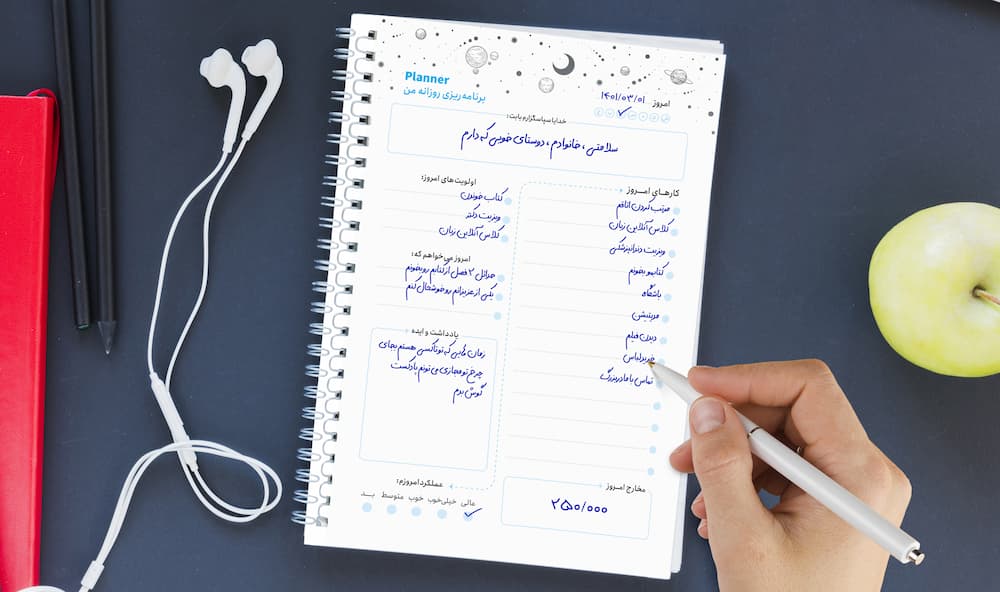 Planner
برنامه‌ریزی روزانه من
امروز ۱۴۰۱/۰۳/۰۱
خدایا سپاسگزارم بابت:
سلامتی، خانوادم، دوستای خوبی که دارم
کارهای امروز
مرتب کردن اتاقم
کلاس آنلاین زبان
ویزیت دندانپزشکی
کتابمو بخونم
باشگاه
مدیتیشن
دیدن فیلم
خرید لباس
تماس با مادربزرگ
مخارج امروز
۲۵۰/۰۰۰
اولویت‌های امروز:
کتاب خوندن
ویزیت دکتر
کلاس آنلاین زبان
امروز می‌خواهم که:
حداقل ۲ فصل از کتابم رو بخونم
یکی از عزیزانم رو خوشحال کنم
یادداشت و ایده
زمان هایی که تو تاکسی هستم بجای
چرخ تو مجازی می تونم پادکست
گوش بدم
عملکرد امروزم:
عالی خیلی‌خوب خوب متوسط بد